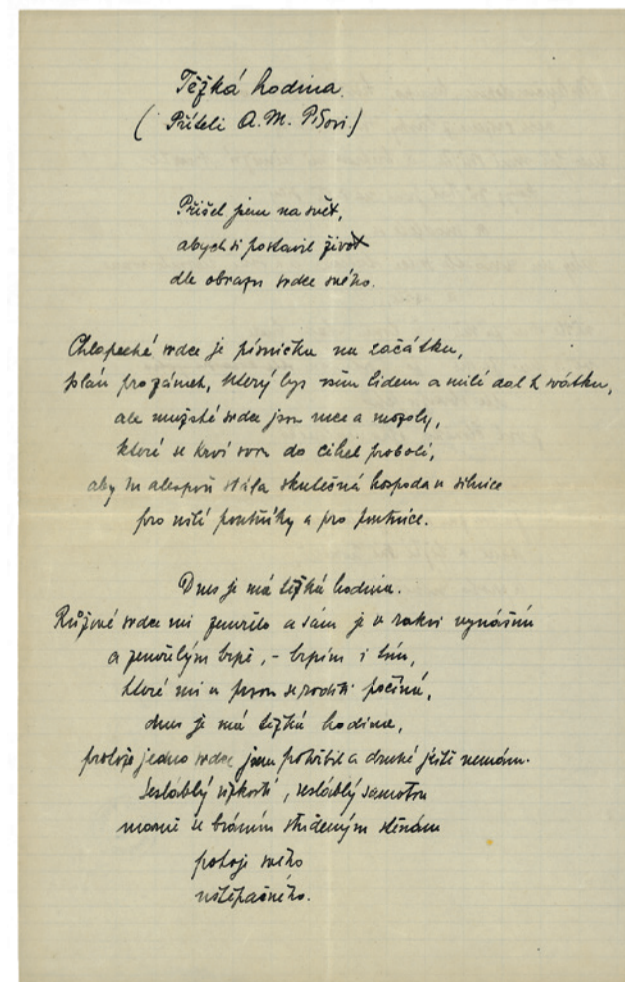 Těžká hodina.
(Příteli A. M. Píšovi.)
Přišel jsem na svět,
abych si postavil život
dle obrazu srdce svého.
Chlapecké srdce je písnička na začátku,
plán pro zámek, který bys všem lidem a milé dal k svátku,
ale mužské srdce jsou ruce a mozoly,
které se krví svou do cihel probolí,
aby tu alespoň stála skutečná hospoda u silnice
pro milé poutníky a pro poutnice.
Dnes je má těžká hodina.
Růžové srdce mi zemřelo a sám je v rakvi vynáším
a zemřelým trpě, – trpím i tím,
které mi v prsou se roditi počíná,
dnes je má těžká hodina,
protože jedno srdce jsem pohřbil a druhé ještě nemám.
Zesláblý úzkostí, zesláblý samotou
marně se bráním studeným stěnám
pokoje svého
uštěpačného.